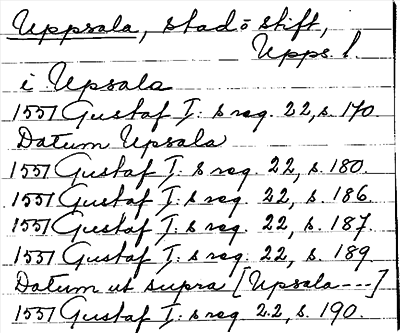 Uppsala, stad o stift,
Upps. l.
i Upsala
1551 Gustaf I: s reg. 22, s. 170
Datum Upsala
1551 Gustaf I: s reg. 22, s. 180.
1551 Gustaf I: s reg. 22, s. 186
1551 Gustaf I: s reg. 22, s. 187.
1551 Gustaf I: s reg. 22, s. 189
Datum ut supra [Upsala ---]
1551 Gustaf I: s reg. 22, s. 190.